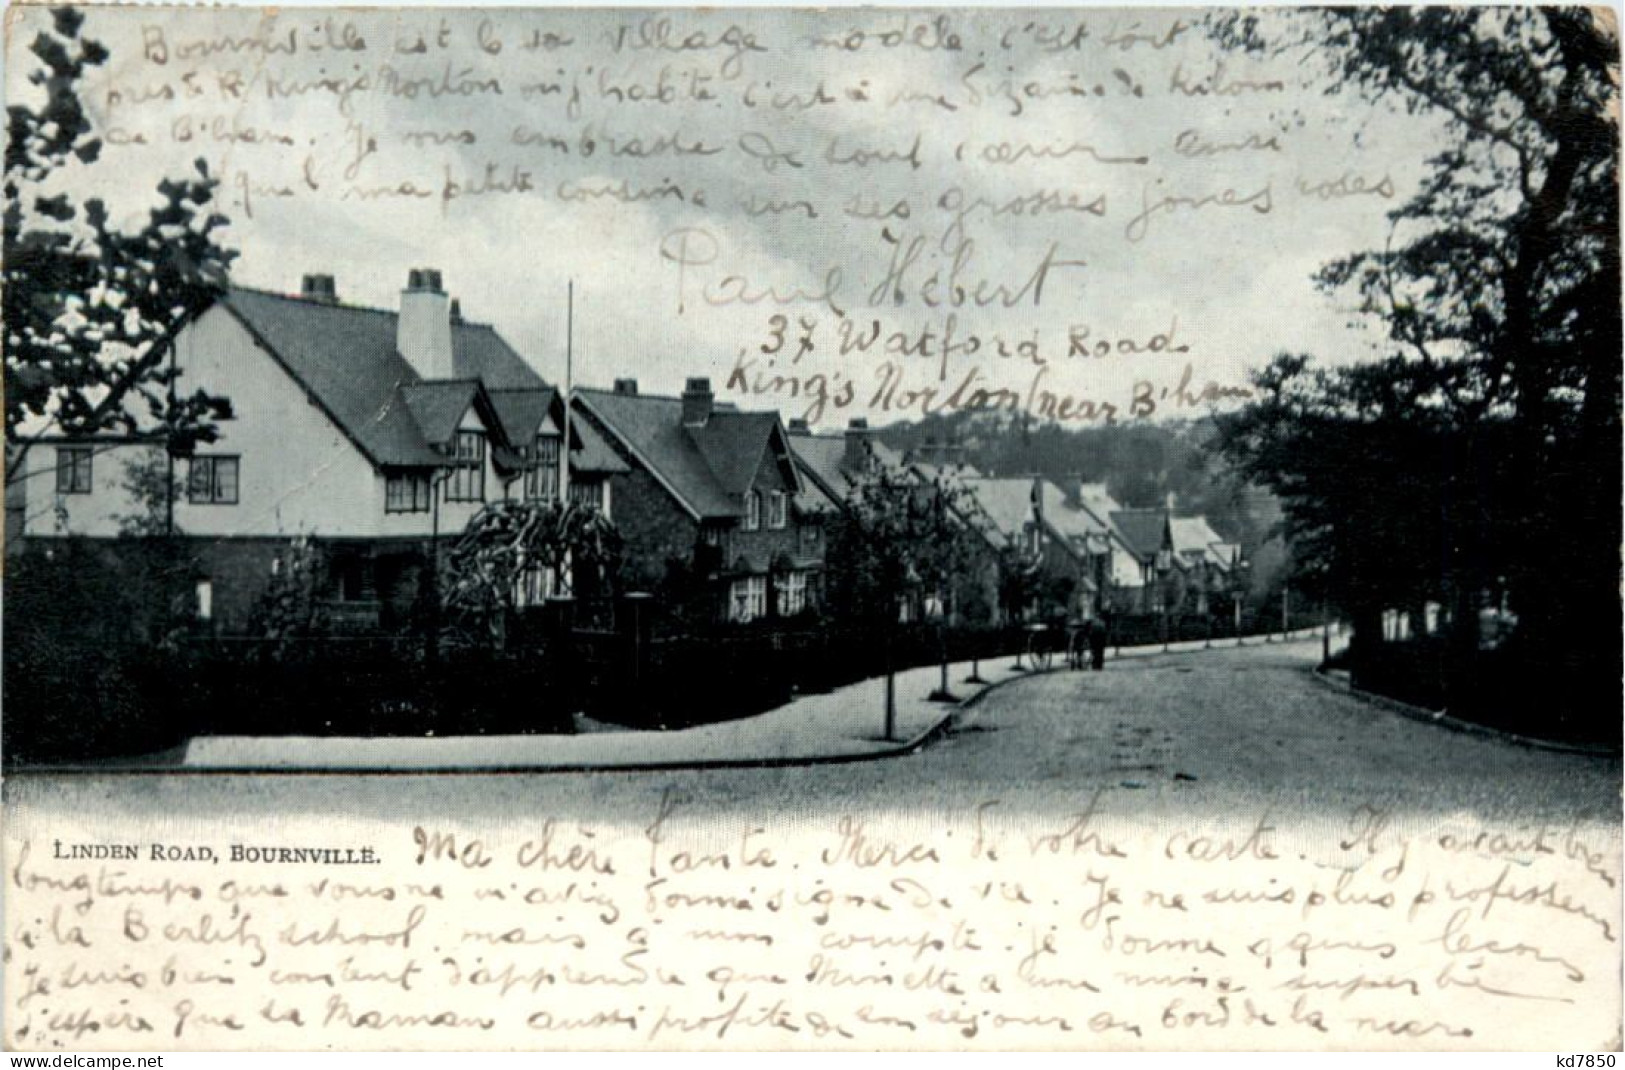 Bournville est le village modèle. c'est fort
près de King's Norton où j'habite. c'est à une dizaine de kilom
de B'ham. Je vous embrasse de tout cœur ainsi
que ma petite cousine sur ses grosses joues roses
Paul Hébert
37 Watford Road
King's Norton (near B'ham
LINDEN ROAD, BOURNVILLE.
Ma chère Tante. Merci de votre carte. Il y avait bien
longtemps que vous ne m'aviez donné signe de vie. Je ne suis plus professeur
à la Berlitz school, mais à mon compte. je donne qques leçons
Je suis bien content d'apprendre que Minette a une mine superbe
j'espère que sa Maman aussi profite de son séjour au bord de la mer.
kd7850